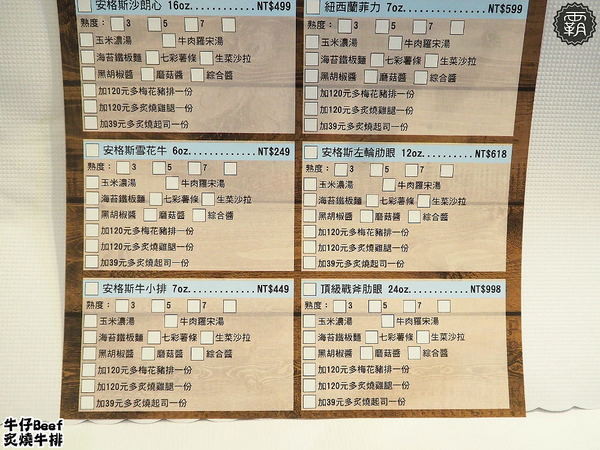 安格斯沙朗心 16oz............NT$499
熟度： 3 5 7
玉米濃湯 牛肉羅宋湯
海苔鐵板麵 七彩薯條 生菜沙拉
黑胡椒醬 蘑菇醬 綜合醬
加120元多梅花豬排一份
加120元多炙燒雞腿一份
加39元多炙燒起司一份
紐西蘭菲力 7oz............NT$599
熟度： 3 5 7
玉米濃湯 牛肉羅宋湯
海苔鐵板麵 七彩薯條 生菜沙拉
黑胡椒醬 蘑菇醬 綜合醬
加120元多梅花豬排一份
加120元多炙燒雞腿一份
加39元多炙燒起司一份
安格斯雪花牛 6oz............NT$249
熟度： 3 5 7
玉米濃湯 牛肉羅宋湯
海苔鐵板麵 七彩薯條 生菜沙拉
黑胡椒醬 蘑菇醬 綜合醬
加120元多梅花豬排一份
加120元多炙燒雞腿一份
加39元多炙燒起司一份
安格斯左輪肋眼 12oz...........NT$618
熟度： 3 5 7
玉米濃湯 牛肉羅宋湯
海苔鐵板麵 七彩薯條 生菜沙拉
黑胡椒醬 蘑菇醬 綜合醬
加120元多梅花豬排一份
加120元多炙燒雞腿一份
加39元多炙燒起司一份
安格斯牛小排 7oz............NT$449
熟度： 3 5 7
玉米濃湯 牛肉羅宋湯
海苔鐵板麵 七彩薯條 生菜沙拉
黑胡椒醬 蘑菇醬 綜合醬
加120元多梅花豬排一份
加120元多炙燒雞腿一份
加39元多炙燒起司一份
頂級戰斧肋眼 24oz............NT$998
熟度： 3 5 7
玉米濃湯 牛肉羅宋湯
海苔鐵板麵 七彩薯條 生菜沙拉
黑胡椒醬 蘑菇醬 綜合醬
加120元多梅花豬排一份
加120元多炙燒雞腿一份
加39元多炙燒起司一份
霸
牛仔Beef
炙燒牛排